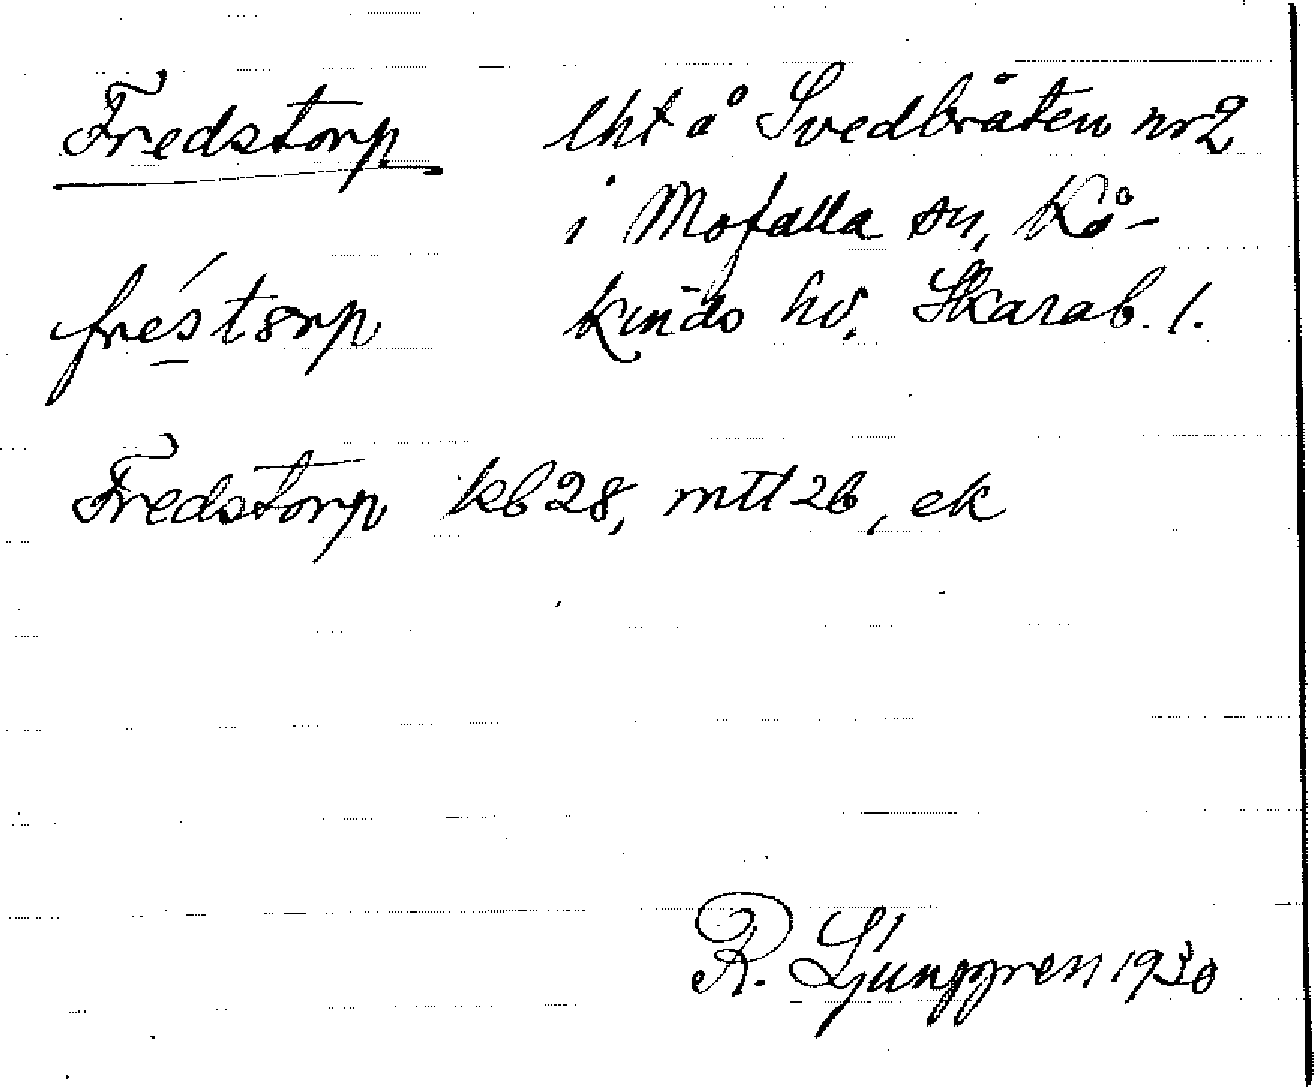 Fredstorp lht å Svedbråten nr 2
i Mofalla sn, Kå-
fréstorp kinds hd. Skarab. l.
Fredstorp kb 28, mtl 26, ek
R. Ljunggren 1930